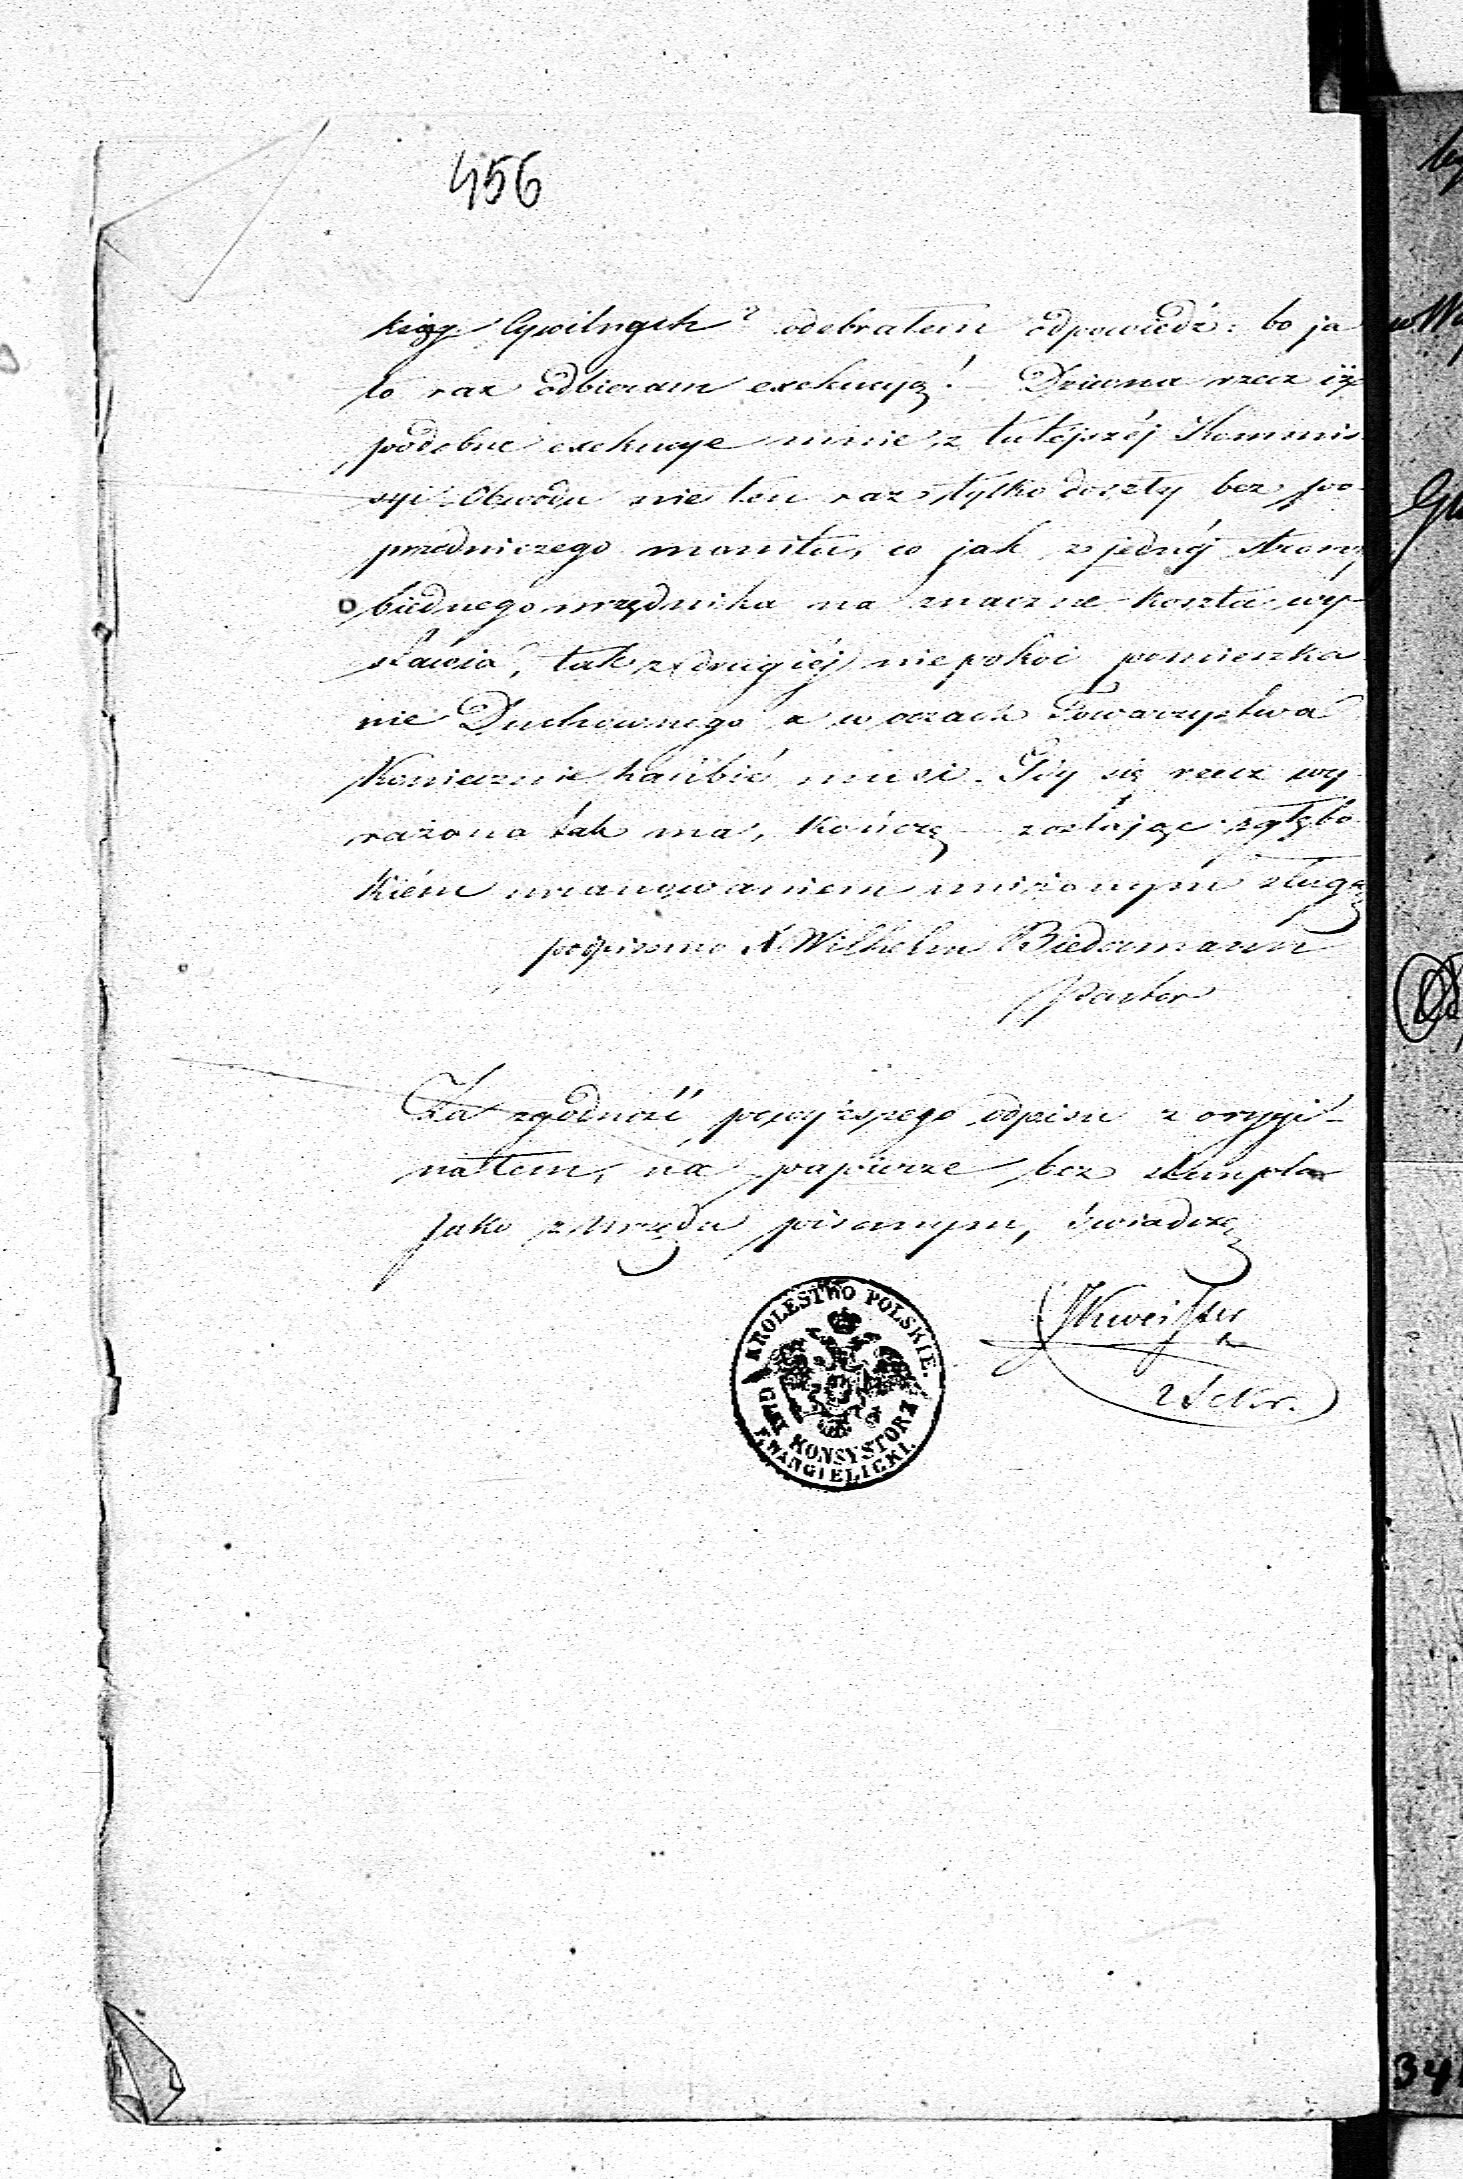 456
ksiąg Cywilnych? odebrałem odpowiedź: bo ja
to raz odbieram exekucyą! – Dziwna rzecz iż
podobne exekucye mnie z tutéjszéj Kommis-
syi Obwodu nie ten raz tylko doszły bez po-
przedniczego monitu, co jak z jednéj strony
biednego urzędnika na znaczne koszta wy-
stawia, tak z drugiéj niepokoi pomieszka-
nie Duchownego a w oczach Towarzystwa
Koniecznie hańbić musi. Gdy się rzecz wy-
rażona tak ma, kończę zostając z głębo-
kiém uszanowaniem uniżonym sługą
podpisano X Wilhelm Biedermann
Pastor
Za zgodność powyższego odpisu z orygi-
nałem, na papierze bez stempla
jako z Urzędu pisanym, świadczę
Sekr.
KROLESTWO POLSKIE.
KONSYSTORZ
EWANGIELICKI.
34